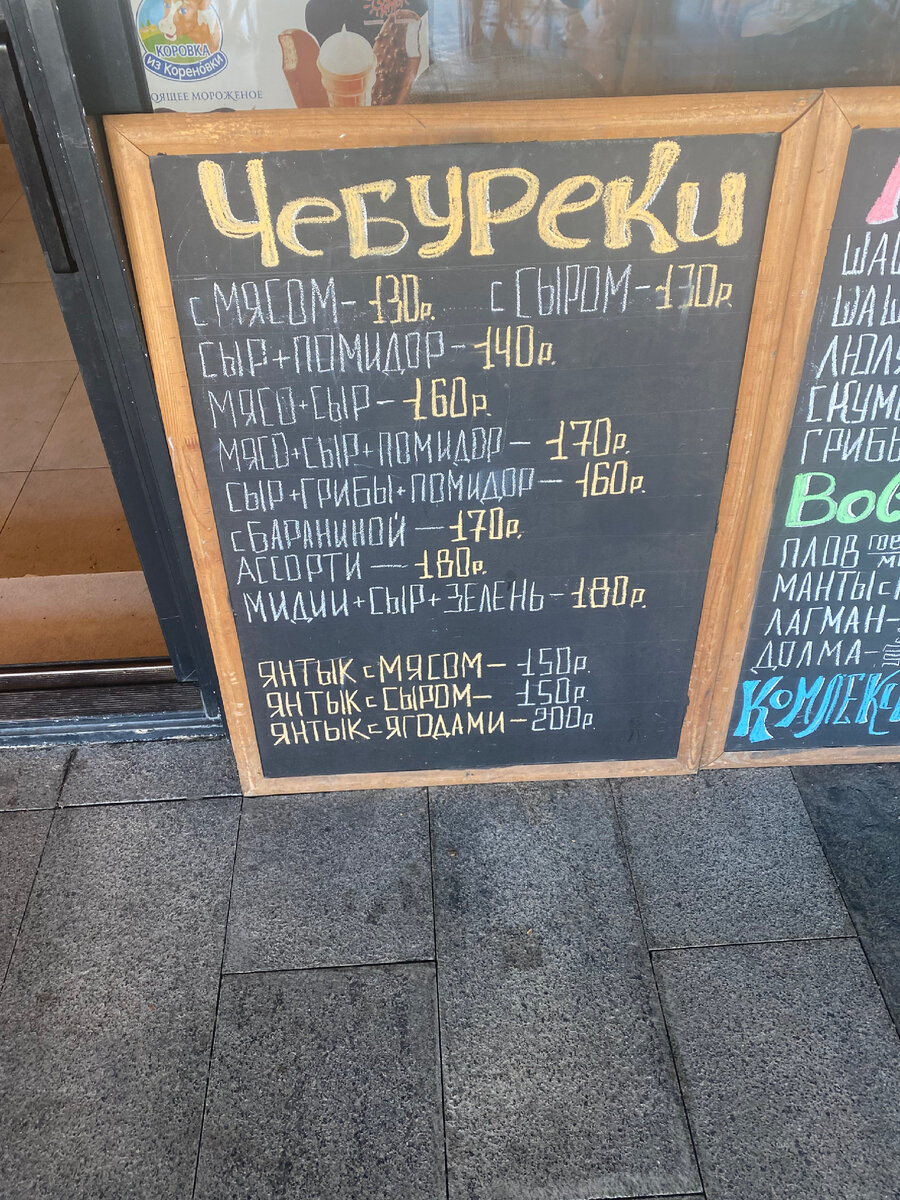 КОРОВКА
ИЗ КОРЕНОВКИ
ОЯЩЕЕ МОРОЖЕНОЕ
Чебуреки
с МЯСОМ - 130р. с СЫРОМ - 130р.
СЫР+ПОМИДОР - 140р.
МЯСО+СЫР - 160р.
МЯСО+СЫР+ПОМИДОР - 170р.
СЫР+ГРИБЫ+ПОМИДОР - 160р.
с БАРАНИНОЙ - 170р.
АССОРТИ - 180р.
МИДИИ+СЫР+ЗЕЛЕНЬ - 180р.
ЯНТЫК с МЯСОМ - 150р.
ЯНТЫК с СЫРОМ - 150р.
ЯНТЫК с ЯГОДАМИ - 200р
ША
ШАШ
ЛЮЛ
СКУМ
ГРИБЫ
ПЛОВ
МАНТЫ с
ЛАГМАН -
ДОЛМА -
КОМЛЕКС